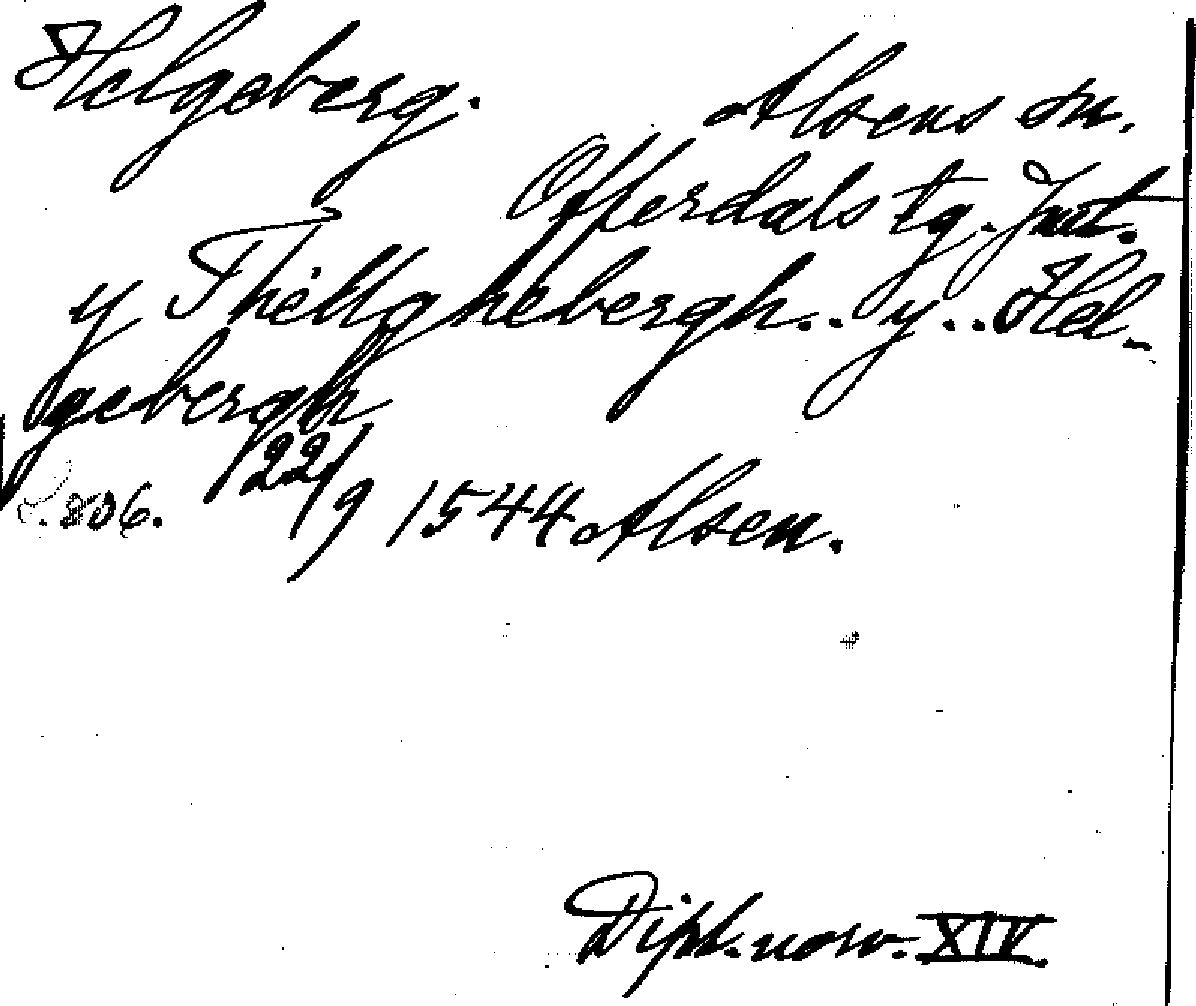 Helgeberg. Alsens sn.
Offerdals tg. Jmt.
y Thellghebergh.. y.. Hel-
gebergh
S. 806. 22/9 1544 Alsen.
Dipl. norv. XIV.